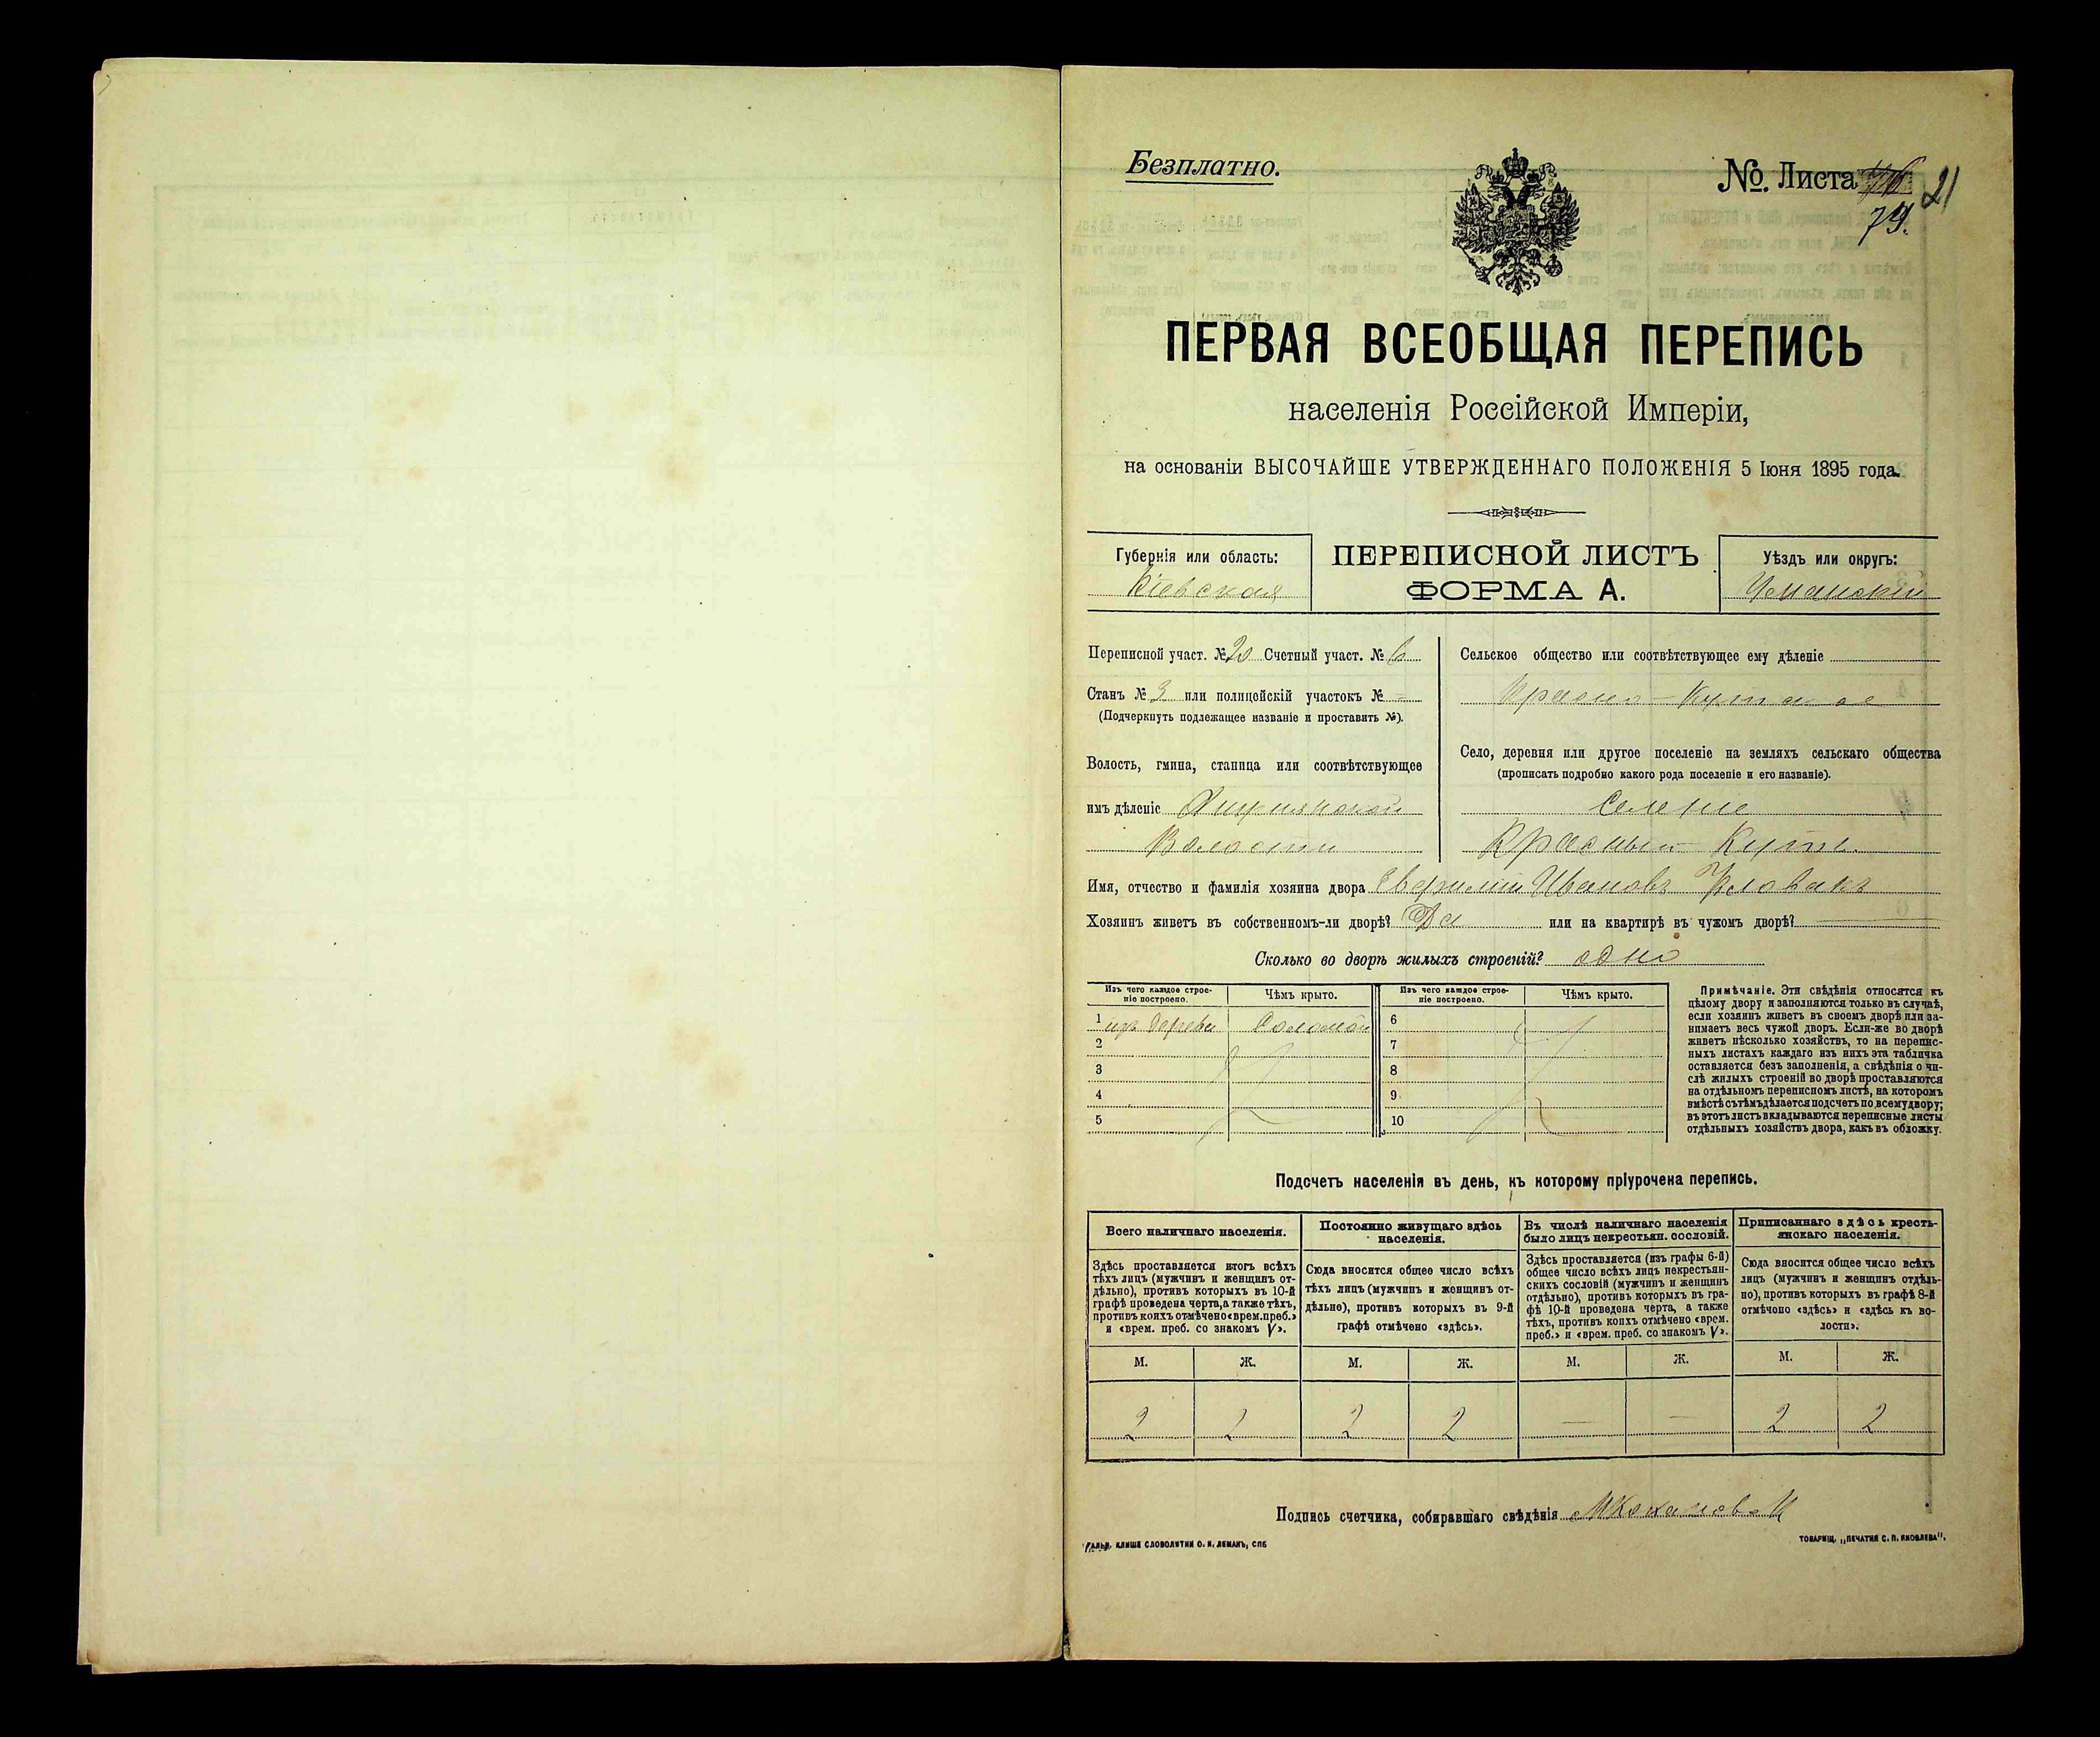 Безплатно.
№. Листа 21
79.
ПЕРВАЯ ВСЕОБЩАЯ ПЕРЕПИСЬ
населенія Россійской Имперіи,
на основаніи ВЫСОЧАЙШЕ УТВЕРЖДЕННАГО ПОЛОЖЕНІЯ 5 Іюня 1895 года.
Губернія или область:
Кіевская
ПЕРЕПИСНОЙ ЛИСТЪ
ФОРМА А.
Уѣздъ или округъ:
Уманскій
Переписной участ. № 20 Счетный участ. № 6
Станъ № 3 или полицейскій участокъ № -
(Подчеркнуть подлежащее названіе и проставить №).
Волость, гмина, станица или соотвѣтствующее
имъ дѣленіе
Волости
Сельское общество или соотвѣтствующее ему дѣленіе
Красно-Кутское
Село, деревня или другое поселеніе на земляхъ сельскаго общества
(прописать подробно какого рода поселеніе и его названіе).
Селеніе
Красный Кутъ
Имя, отчество и фамилія хозяина двора Ивановъ
Хозяинъ живетъ въ собственномъ-ли дворѣ? Да или на квартирѣ въ чужомъ дворѣ?
Сколько во дворѣ жилыхъ строеній? одно
Изъ чего каждое строе-
ніе построено.
Чѣмъ крыто.
Изъ чего каждое строе-
ніе построено.
Чѣмъ крыто.
1 изъ дерева Соломой 6
2 7
3 8
4 9
5 10
Примѣчаніе. Эти свѣдѣнія относятся къ
цѣлому двору и заполняются только въ случаѣ,
если хозяинъ живетъ въ своемъ дворѣ или за-
нимаетъ весь чужой дворъ. Если-же во дворѣ
живетъ нѣсколько хозяйствъ, то на перепис-
ныхъ листахъ каждаго изъ нихъ эта табличка
оставляется безъ заполненія, а свѣдѣнія о чи-
слѣ жилыхъ строеній во дворѣ проставляются
на отдѣльномъ переписномъ листѣ, на которомъ
вмѣстѣ съ тѣмъ дѣлается подсчетъ по всему двору;
въ этотъ листъ вкладываются переписные листы
отдѣльныхъ хозяйствъ двора, какъ въ обложку.
Подсчетъ населенія въ день, къ которому пріурочена перепись.
Всего наличнаго населенія.
Здѣсь проставляется итогъ всѣхъ
тѣхъ лицъ (мужчинъ и женщинъ от-
дѣльно), противъ которыхъ въ 10-й
графѣ проведена черта, а также тѣхъ,
противъ коихъ отмѣчено «врем. преб.»
и «врем. преб. со знакомъ V».
Постоянно живущаго здѣсь
населенія.
Сюда вносится общее число всѣхъ
тѣхъ лицъ (мужчинъ и женщинъ от-
дѣльно), противъ которыхъ въ 9-й
графѣ отмѣчено «здѣсь».
Въ числѣ наличнаго населенія
было лицъ некрестьян. сословій.
Здѣсь проставляется (изъ графы 6-й)
общее число всѣхъ лицъ некрестьян-
скихъ сословій (мужчинъ и женщинъ
отдѣльно), противъ которыхъ въ гра-
фѣ 10-й проведена черта, а также
тѣхъ, противъ коихъ отмѣчено «врем.
преб.» и «врем. преб. со знакомъ V».
Приписаннаго здѣсь кресть-
янскаго населенія.
Сюда вносится общее число всѣхъ
лицъ (мужчинъ и женщинъ отдѣль-
но), противъ которыхъ въ графѣ 8-й
отмѣчено «здѣсь» и «здѣсь къ во-
лости».
М. Ж. М. Ж. М. Ж. М. Ж.
2 2 2 2 — — 2 2
Подпись счетчика, собиравшаго свѣдѣнія
ГАЛЬВ. КЛИШЕ СЛОВОЛИТНИ О. И. ЛЕМАНЪ, СПБ
ТОВАРИЩ. „ПЕЧАТНЯ С. П. ЯКОВЛЕВА".